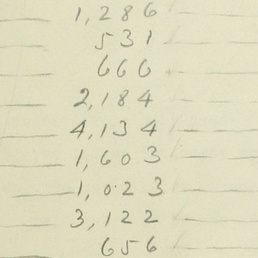 1,286
531
666
2,184
4,134
1,603
1,023
3,122
656